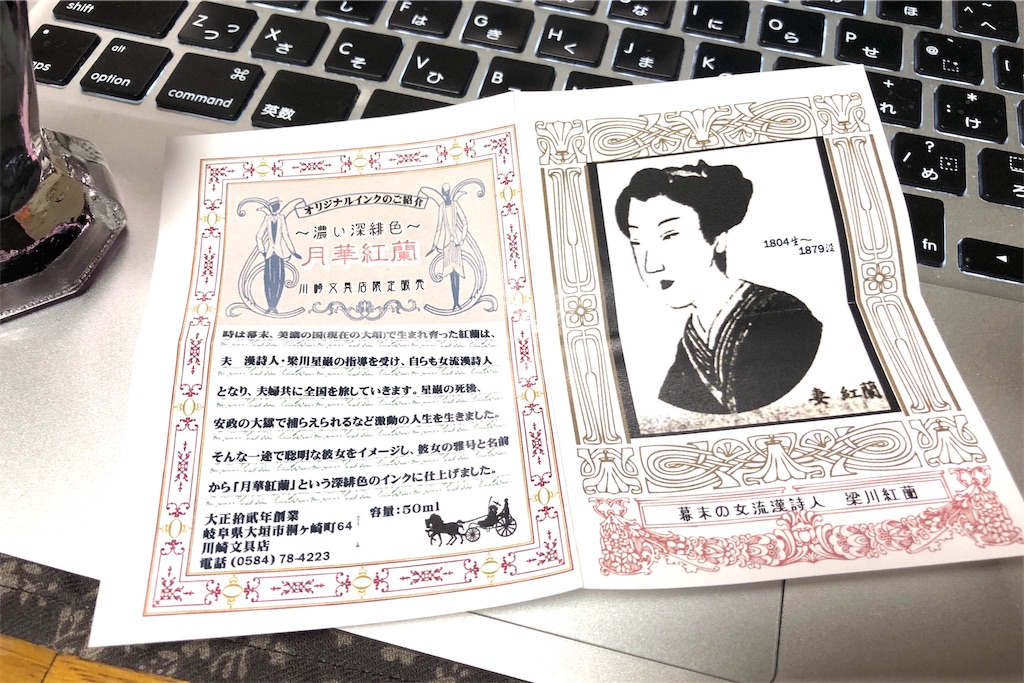 shift
Z つ っ
X さ
C そ
V ひ
B
F は
G き
H く
J ま
K
I に
O ら
P せ
option
alt
command
⌘
英数
fn
オリジナルインクのご紹介
〜濃い深緋色〜
月華紅蘭
川崎文具店限定販売
時は幕末、美濃の国(現在の大垣)で生まれ育った紅蘭は、
夫 漢詩人・梁川星巌の指導を受け、自らも女流漢詩人
となり、夫婦共に全国を旅していきます。星巌の死後、
安政の大獄で捕らえられるなど激動の人生を生きました。
そんな一途で聡明な彼女をイメージし、彼女の雅号と名前
から「月華紅蘭」という深緋色のインクに仕上げました。
大正拾貮年創業
岐阜県大垣市桐ヶ崎町64
川崎文具店
電話 (0584) 78-4223
容量:50ml
1804生〜
1879没
妻 紅蘭
幕末の女流漢詩人 梁川紅蘭